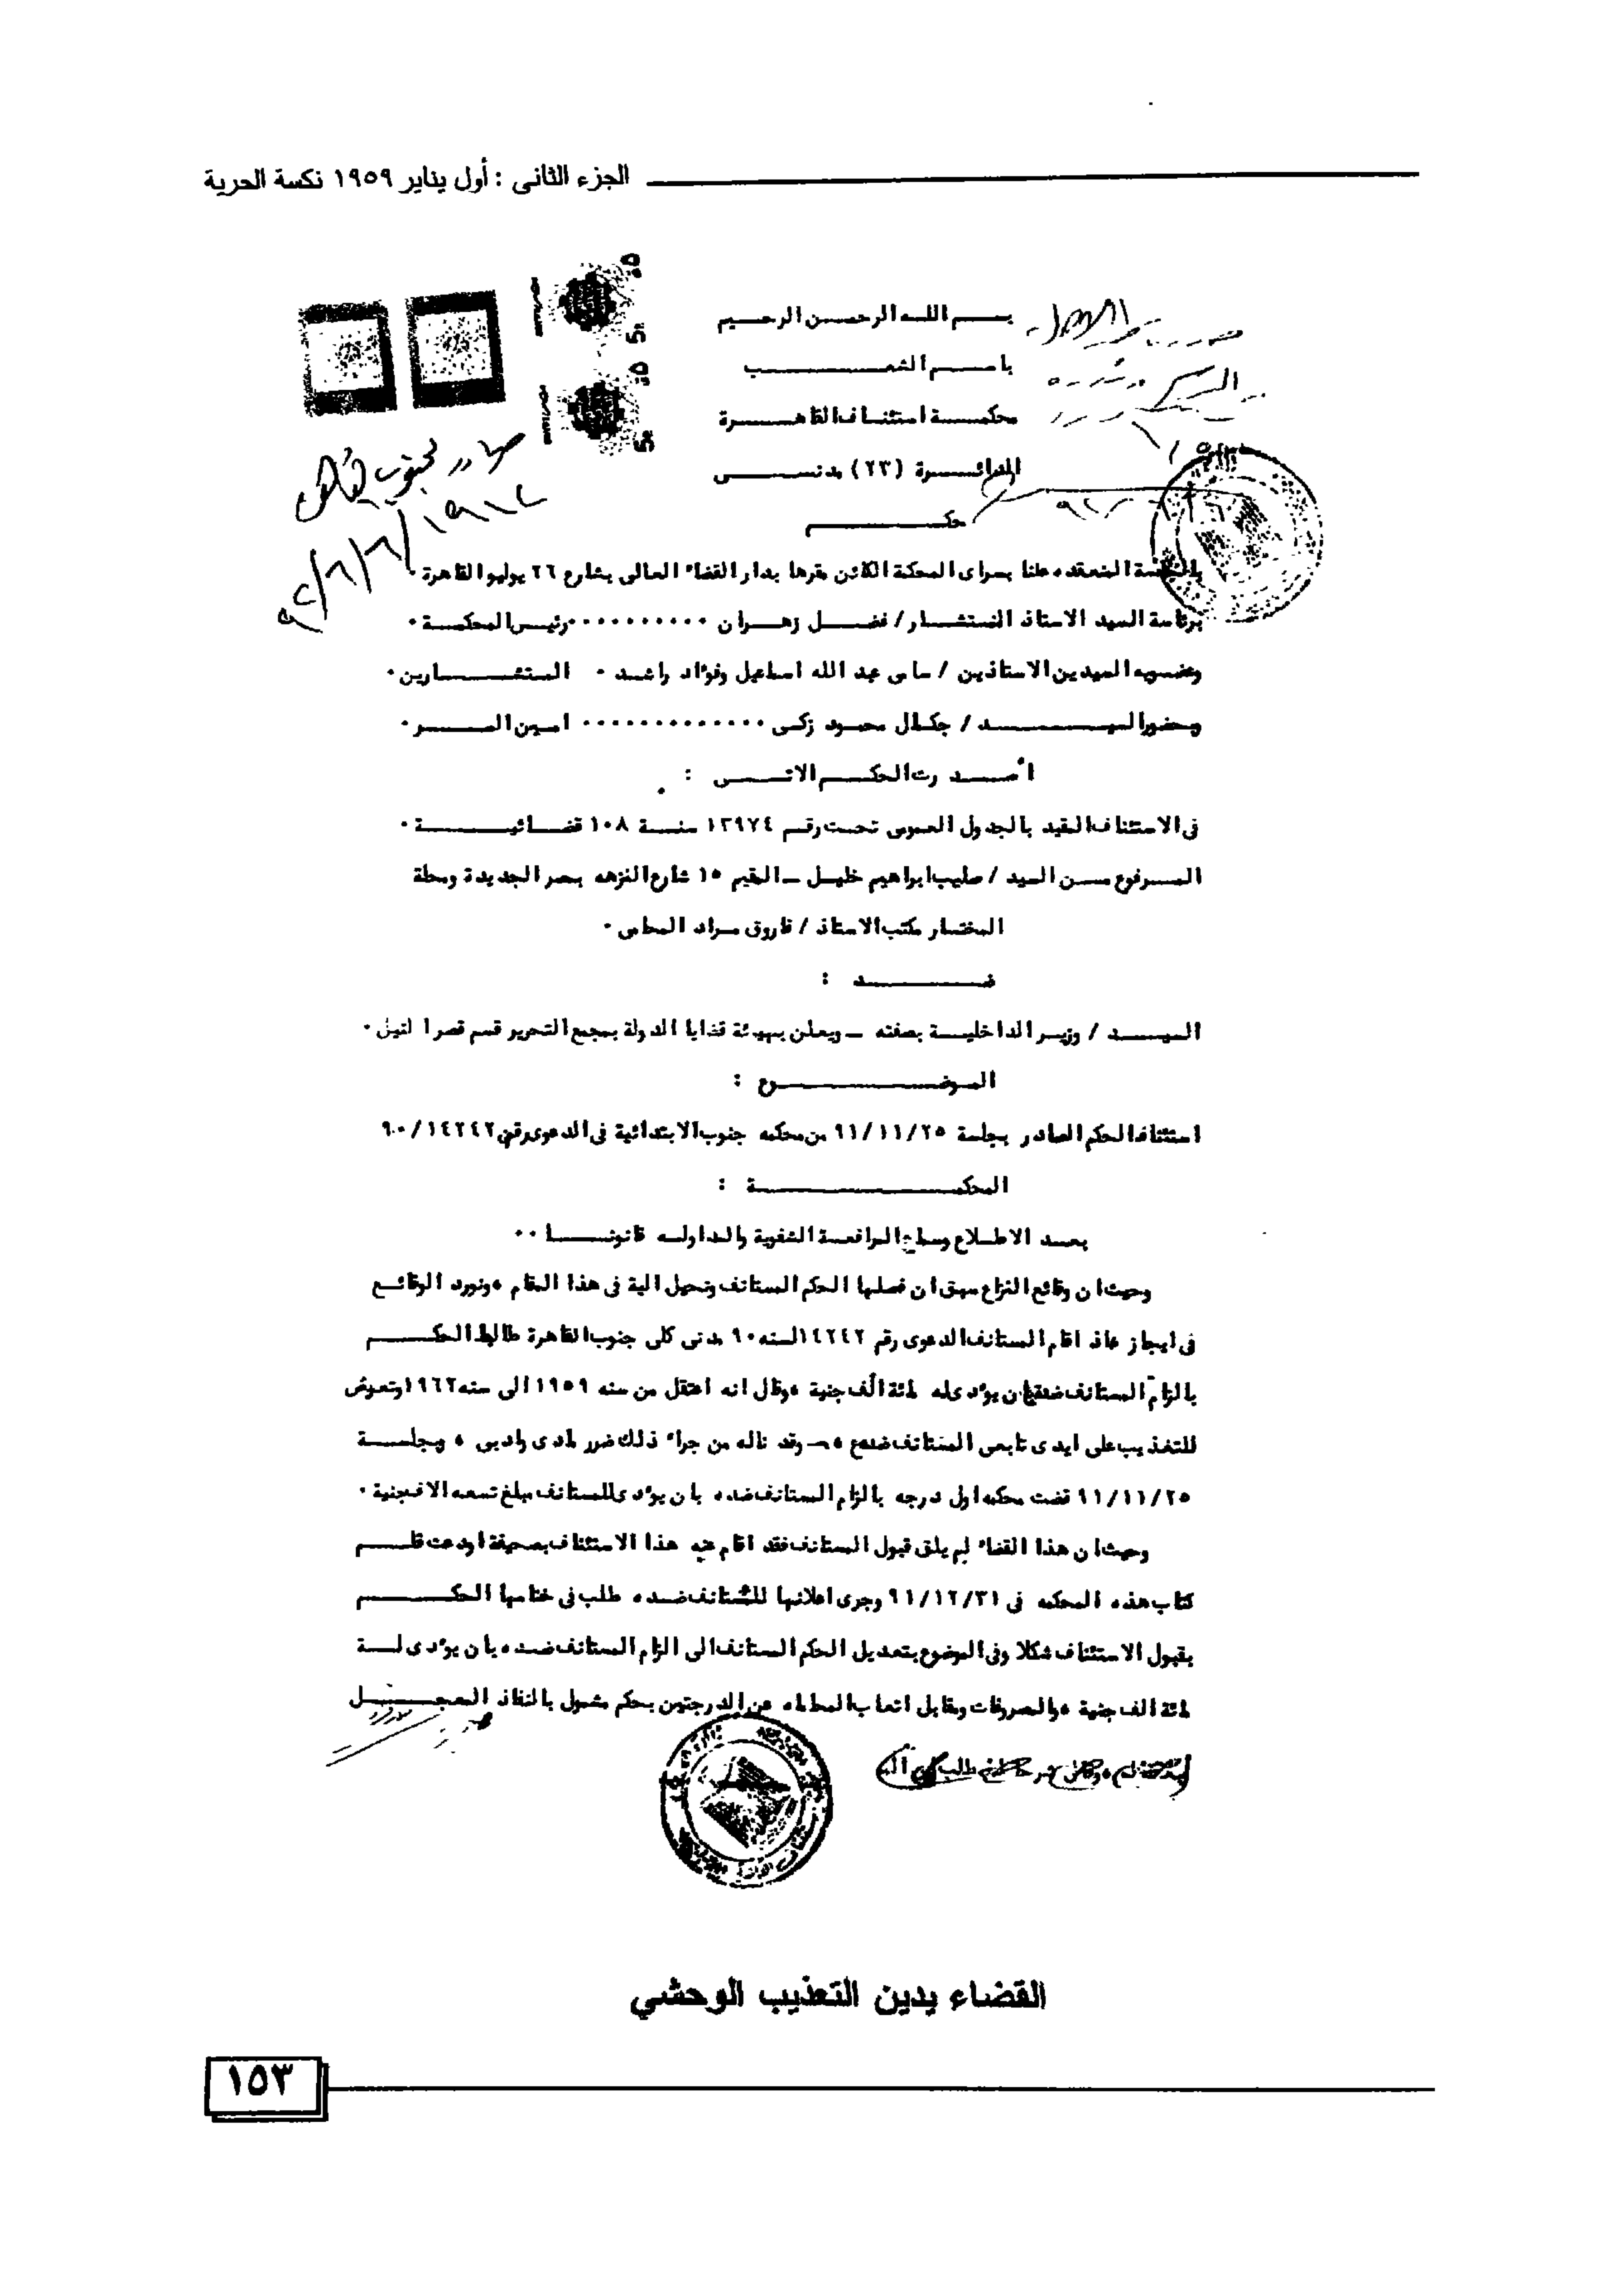 الجزء الثانى : أول يناير ١٩٥٩ نكسة الحرية
بسم الله الرحمن الرحيم
باسم الشعب
محكمة استئناف القاهرة
الدائرة (٢٣) مدنى
حكم
بالجلسة المنعقده علنا بسراى المحكمة الكائن مقرها بدار القضاء العالى بشارع ٢٦ يوليو القاهرة ٠
برئاسة السيد الاستاذ المستشار / فضل زهران ٠٠٠٠٠٠٠٠٠٠ رئيس المحكمة ٠
وعضويه السيدين الاستاذين / سامى عبد الله اسماعيل وفؤاد راشد ٠ المستشارين ٠
وبحضور السيد / جمال محمود زكى ٠٠٠٠٠٠٠٠٠٠٠٠٠ امين السر ٠
اصدرت الحكم الاتى :
فى الاستئناف المقيد بالجدول العمومى تحت رقم ١٣٩٧٤ سنة ١٠٨ قضائية ٠
المرفوع من السيد / صليب ابراهيم خليل ــ المقيم ١٥ شارع النزهه بمصر الجديدة ومحلة
المختار مكتب الاستاذ / فاروق مراد المحامى ٠
ضد :
السيد / وزير الداخلية بصفته ــ ويعلن بهيئة قضايا الدولة بمجمع التحرير قسم قصر النيل ٠
الموضوع :
استئناف الحكم الصادر بجلسة ٩١/١١/٢٥ من محكمه جنوب الابتدائية فى الدعوى رقم ٩٠/١٤٢٤٢
المحكمة :
بعد الاطلاع وسماع المرافعة الشفوية والمداوله قانونا ٠٠
وحيث ان وقائع النزاع سبق ان فصلها الحكم المستانف وتحيل الية فى هذا المقام ، ونورد الوقائع
فى ايجاز اقام المستانف الدعوى رقم ١٤٢٤٢ لسنه ٩٠ مدنى كلى جنوب القاهرة طالبا الحكم
بالزام المستانف ضده بان يؤدى له مائة الف جنية ، وقال انه اعتقل من سنه ١٩٥٩ الى سنه ١٩٦٢ وتعرض
للتعذيب على ايدى تابعى المستانف ضده وقد ناله من جراء ذلك ضرر مادى وادبى ، وبجلسة
٩١/١١/٢٥ قضت محكمه اول درجه بالزام المستانف ضده بان يؤدى للمستانف مبلغ تسعه الاف جنية ٠
وحيث ان هذا القضاء لم يلق قبول المستانف فقد اقام عنه هذا الاستئناف بصحيفة اودعت قلم
كتاب هذه المحكمه فى ٩١/١٢/٣١ وجرى اعلانها للمستانف ضده طلب فى ختامها الحكم
بقبول الاستئناف شكلا وفى الموضوع بتعديل الحكم المستانف الى الزام المستانف ضده بان يؤدى لة
مائة الف جنية ، والمصروفات ومقابل اتعاب المحاماه عن الدرجتين بحكم مشمول بالنفاذ المعجل
القضاء يدين التعذيب الوحشي
١٥٣